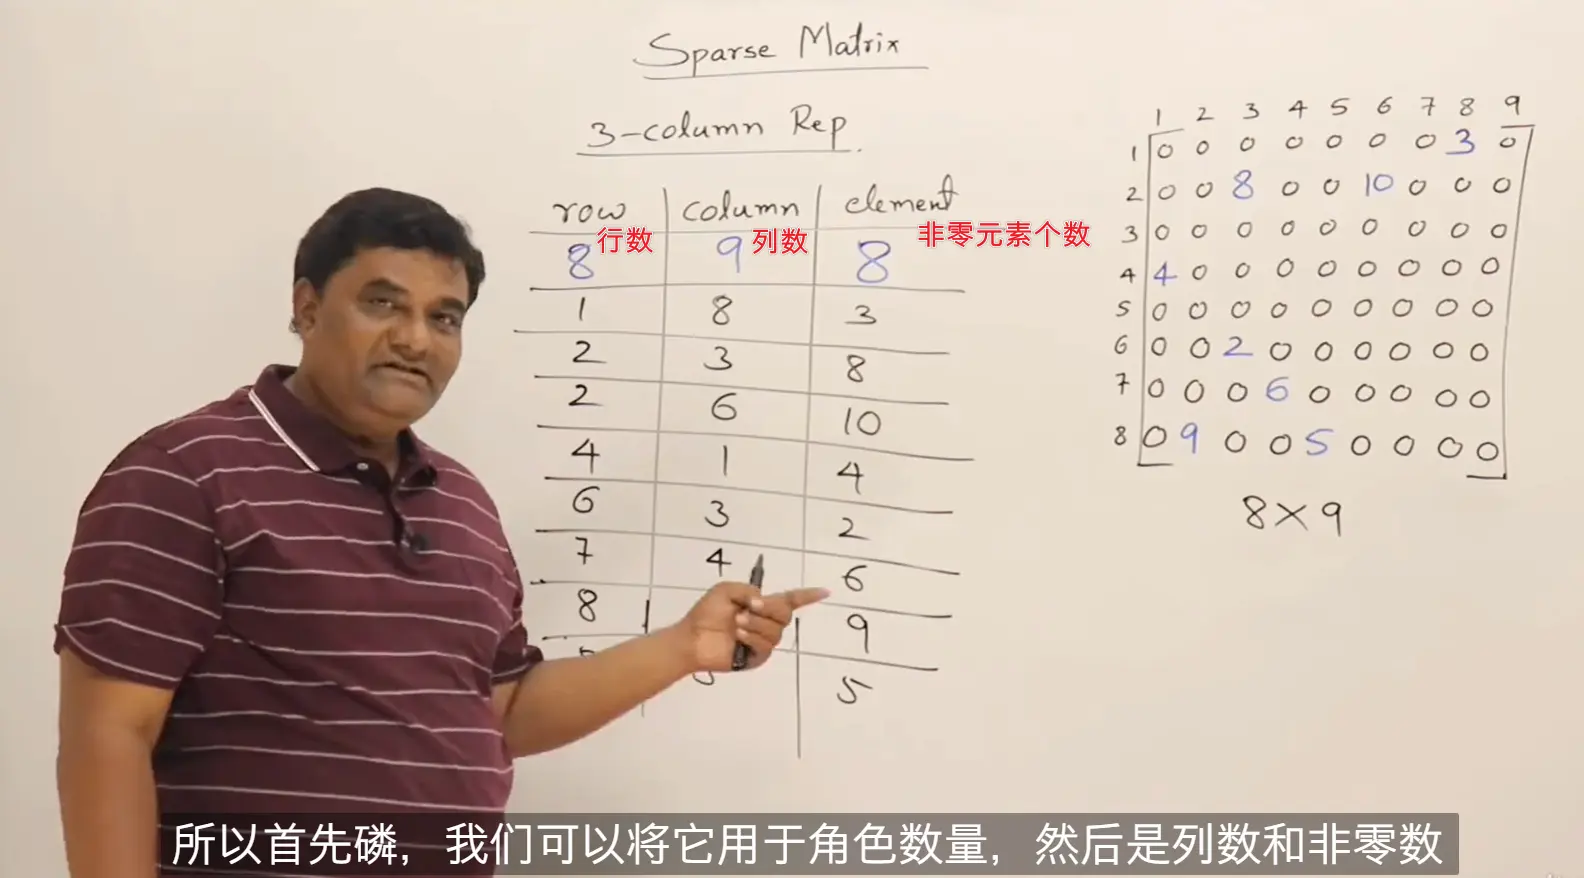 Sparse Matrix
3-column Rep
row column element
8 行数 9 列数 8 非零元素个数
1 8 3
2 3 8
2 6 10
4 1 4
6 3 2
7 4 6
8 9
5
1 2 3 4 5 6 7 8 9
1 0 0 0 0 0 0 0 3 0
2 0 0 8 0 0 10 0 0 0
3 0 0 0 0 0 0 0 0 0
4 4 0 0 0 0 0 0 0 0
5 0 0 0 0 0 0 0 0 0
6 0 0 2 0 0 0 0 0 0
7 0 0 0 6 0 0 0 0 0
8 0 9 0 0 5 0 0 0 0
8×9
所以首先磷，我们可以将它用于角色数量，然后是列数和非零数